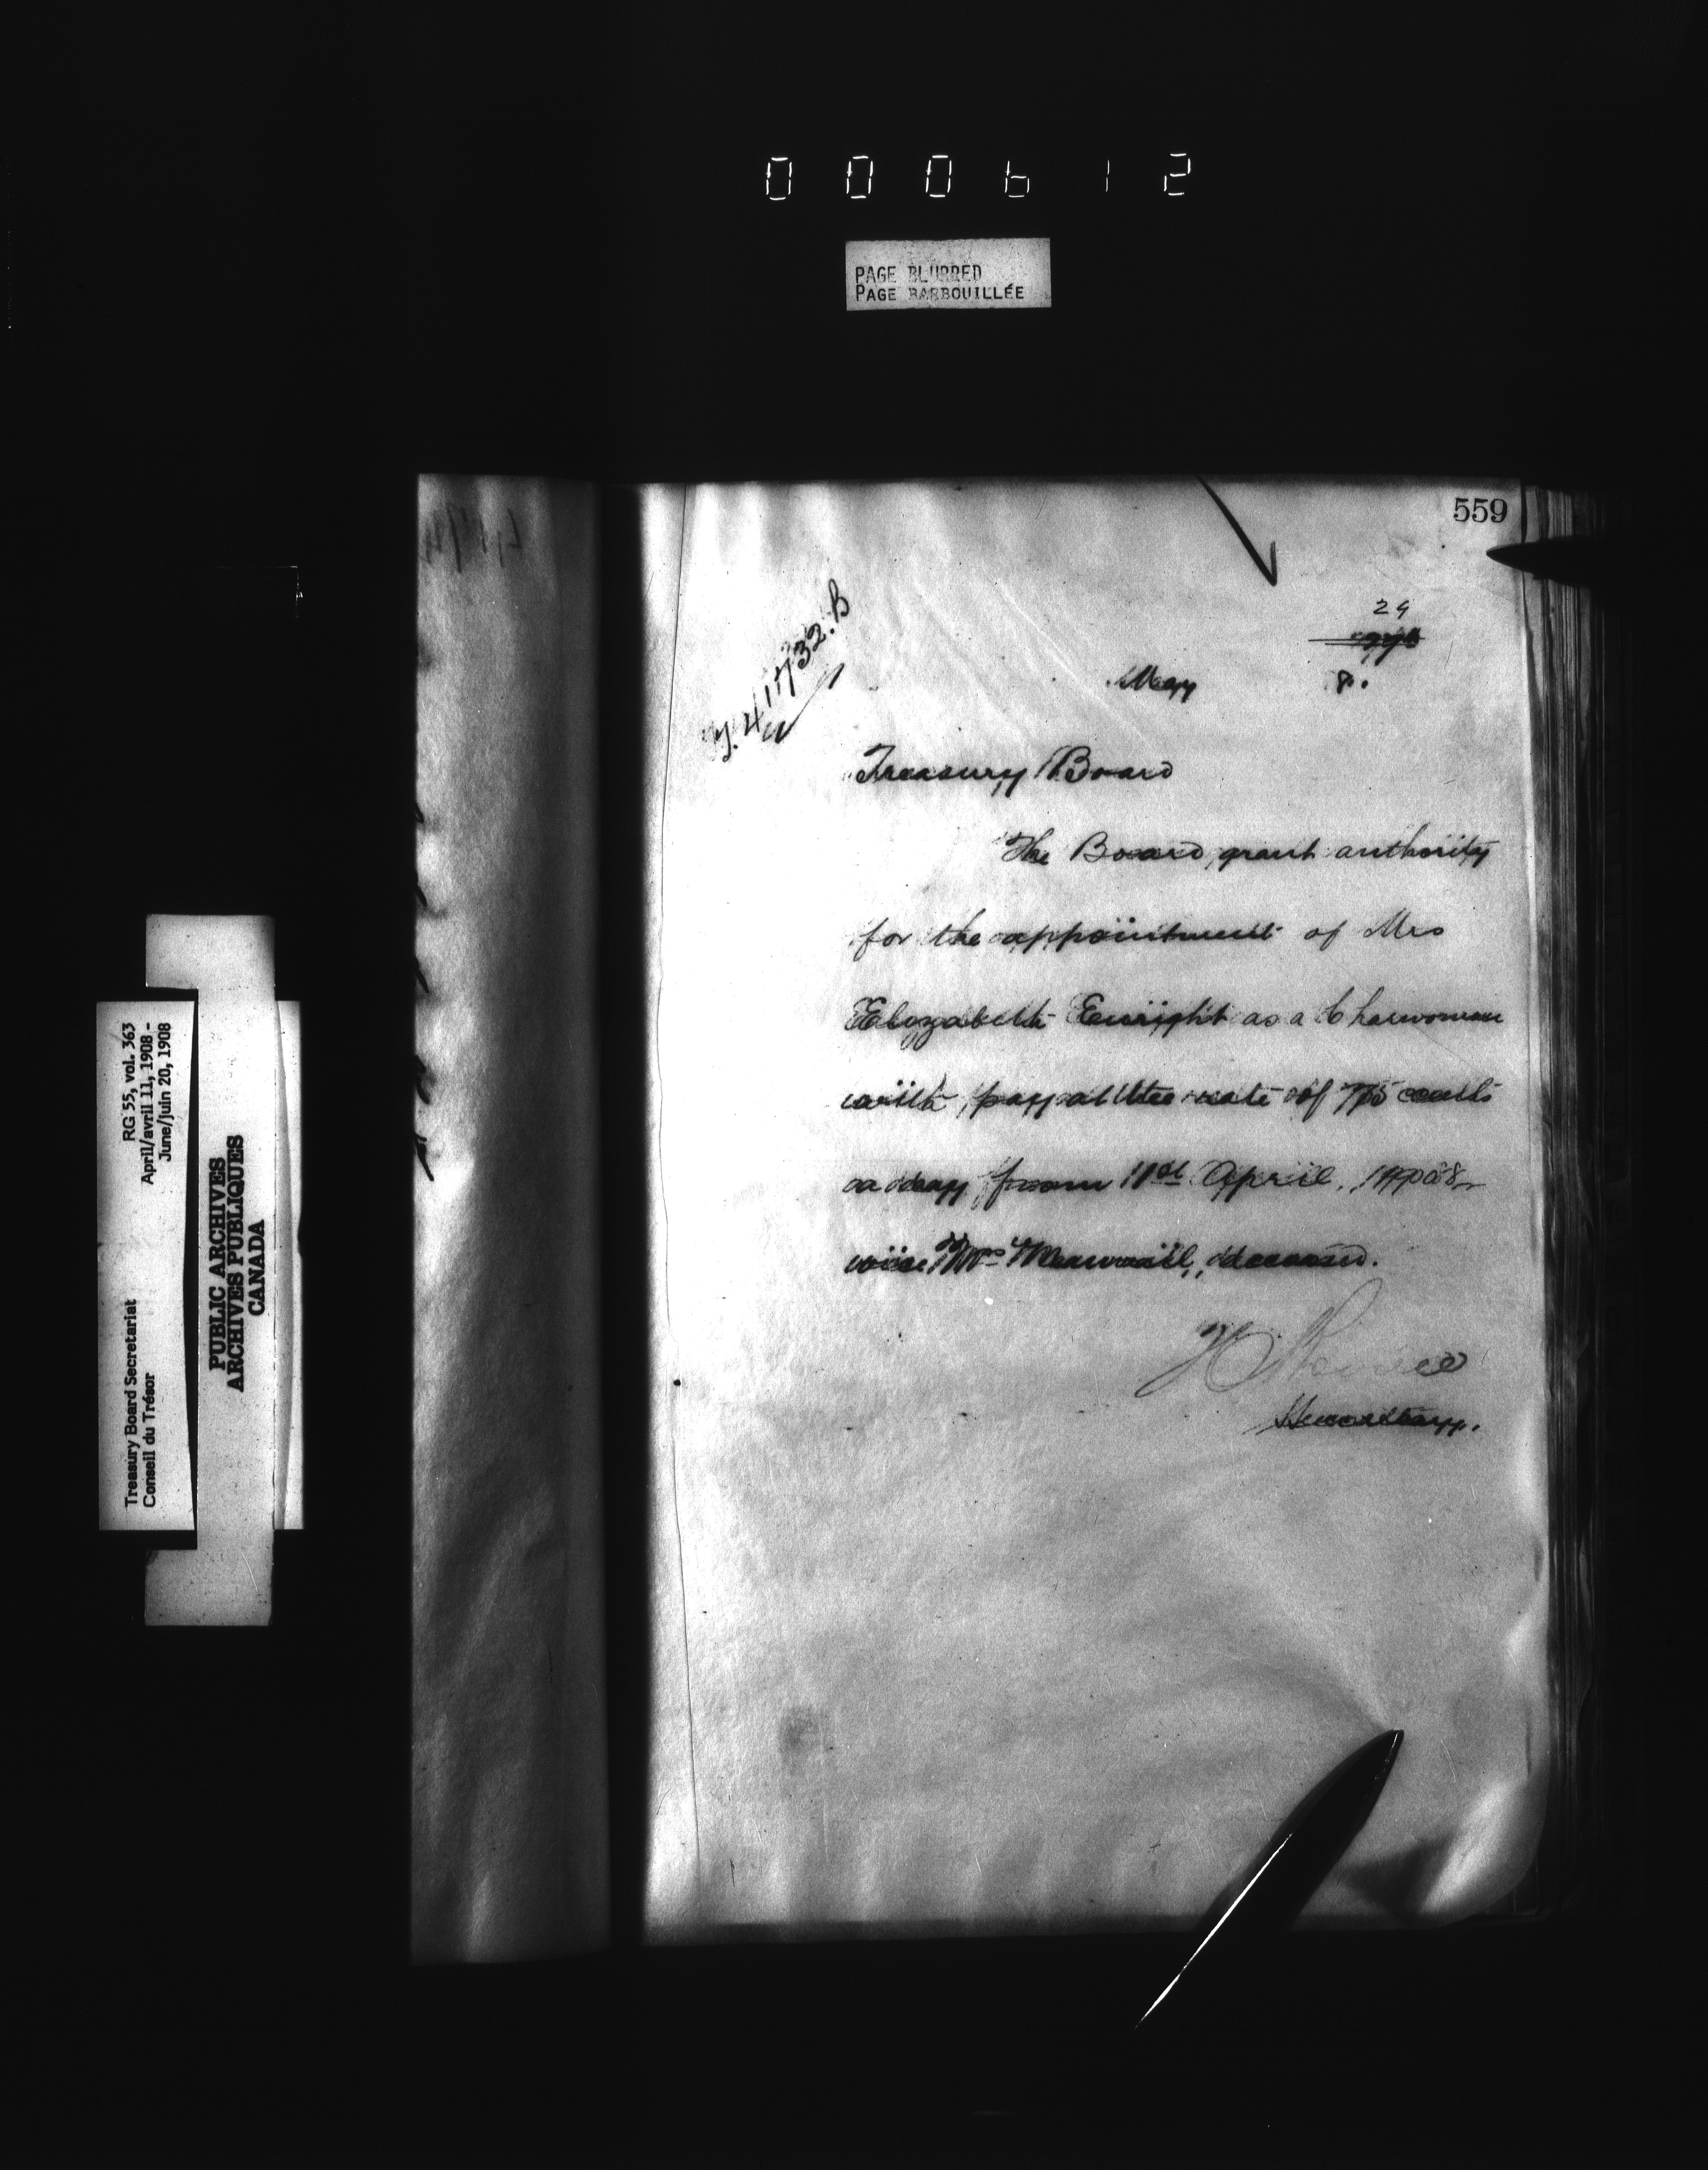 000612
PAGE BLURRED
PAGE BARBOUILLÉE
559
24
T. 41732.B
May 8.
Treasury Board
The Board grant authority
for the appointment of Mrs
Elizabeth Enright as a Charwoman
with pay at the rate of 75 cents
a day from 1st April, 1908
vice Mrs deceased.
Secretary.
RG 55, vol. 363
April/avril 11, 1908 -
June/juin 20, 1908
Treasury Board Secretariat
Conseil du Trésor
PUBLIC ARCHIVES
ARCHIVES PUBLIQUES
CANADA